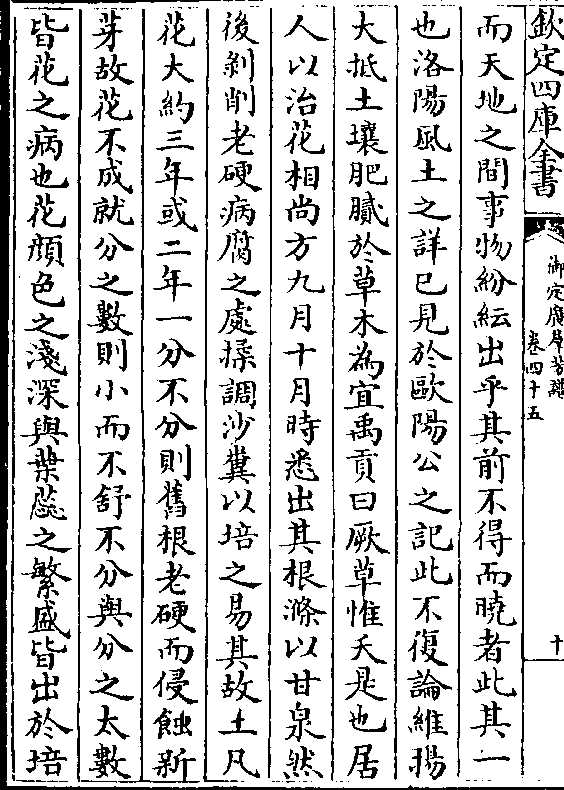 欽定四庫全書
御定廣羣芳譜
卷四十五
十
而天地之間事物紛紜出乎其前不得而曉者此其一
也洛陽風土之詳已見於歐陽公之記此不復論維揚
大抵土壤肥膩於草木為宜禹貢曰厥草惟夭是也居
人以治花相尚方九月十月時悉出其根滌以甘泉然
後剝削老硬病腐之處揉調沙糞以培之易其故土凡
花大約三年或二年一分不分則舊根老硬而侵蝕新
芽故花不成就分之數則小而不舒不分與分之太數
皆花之病也花顏色之淺深與葉蕊之繁盛皆出於培